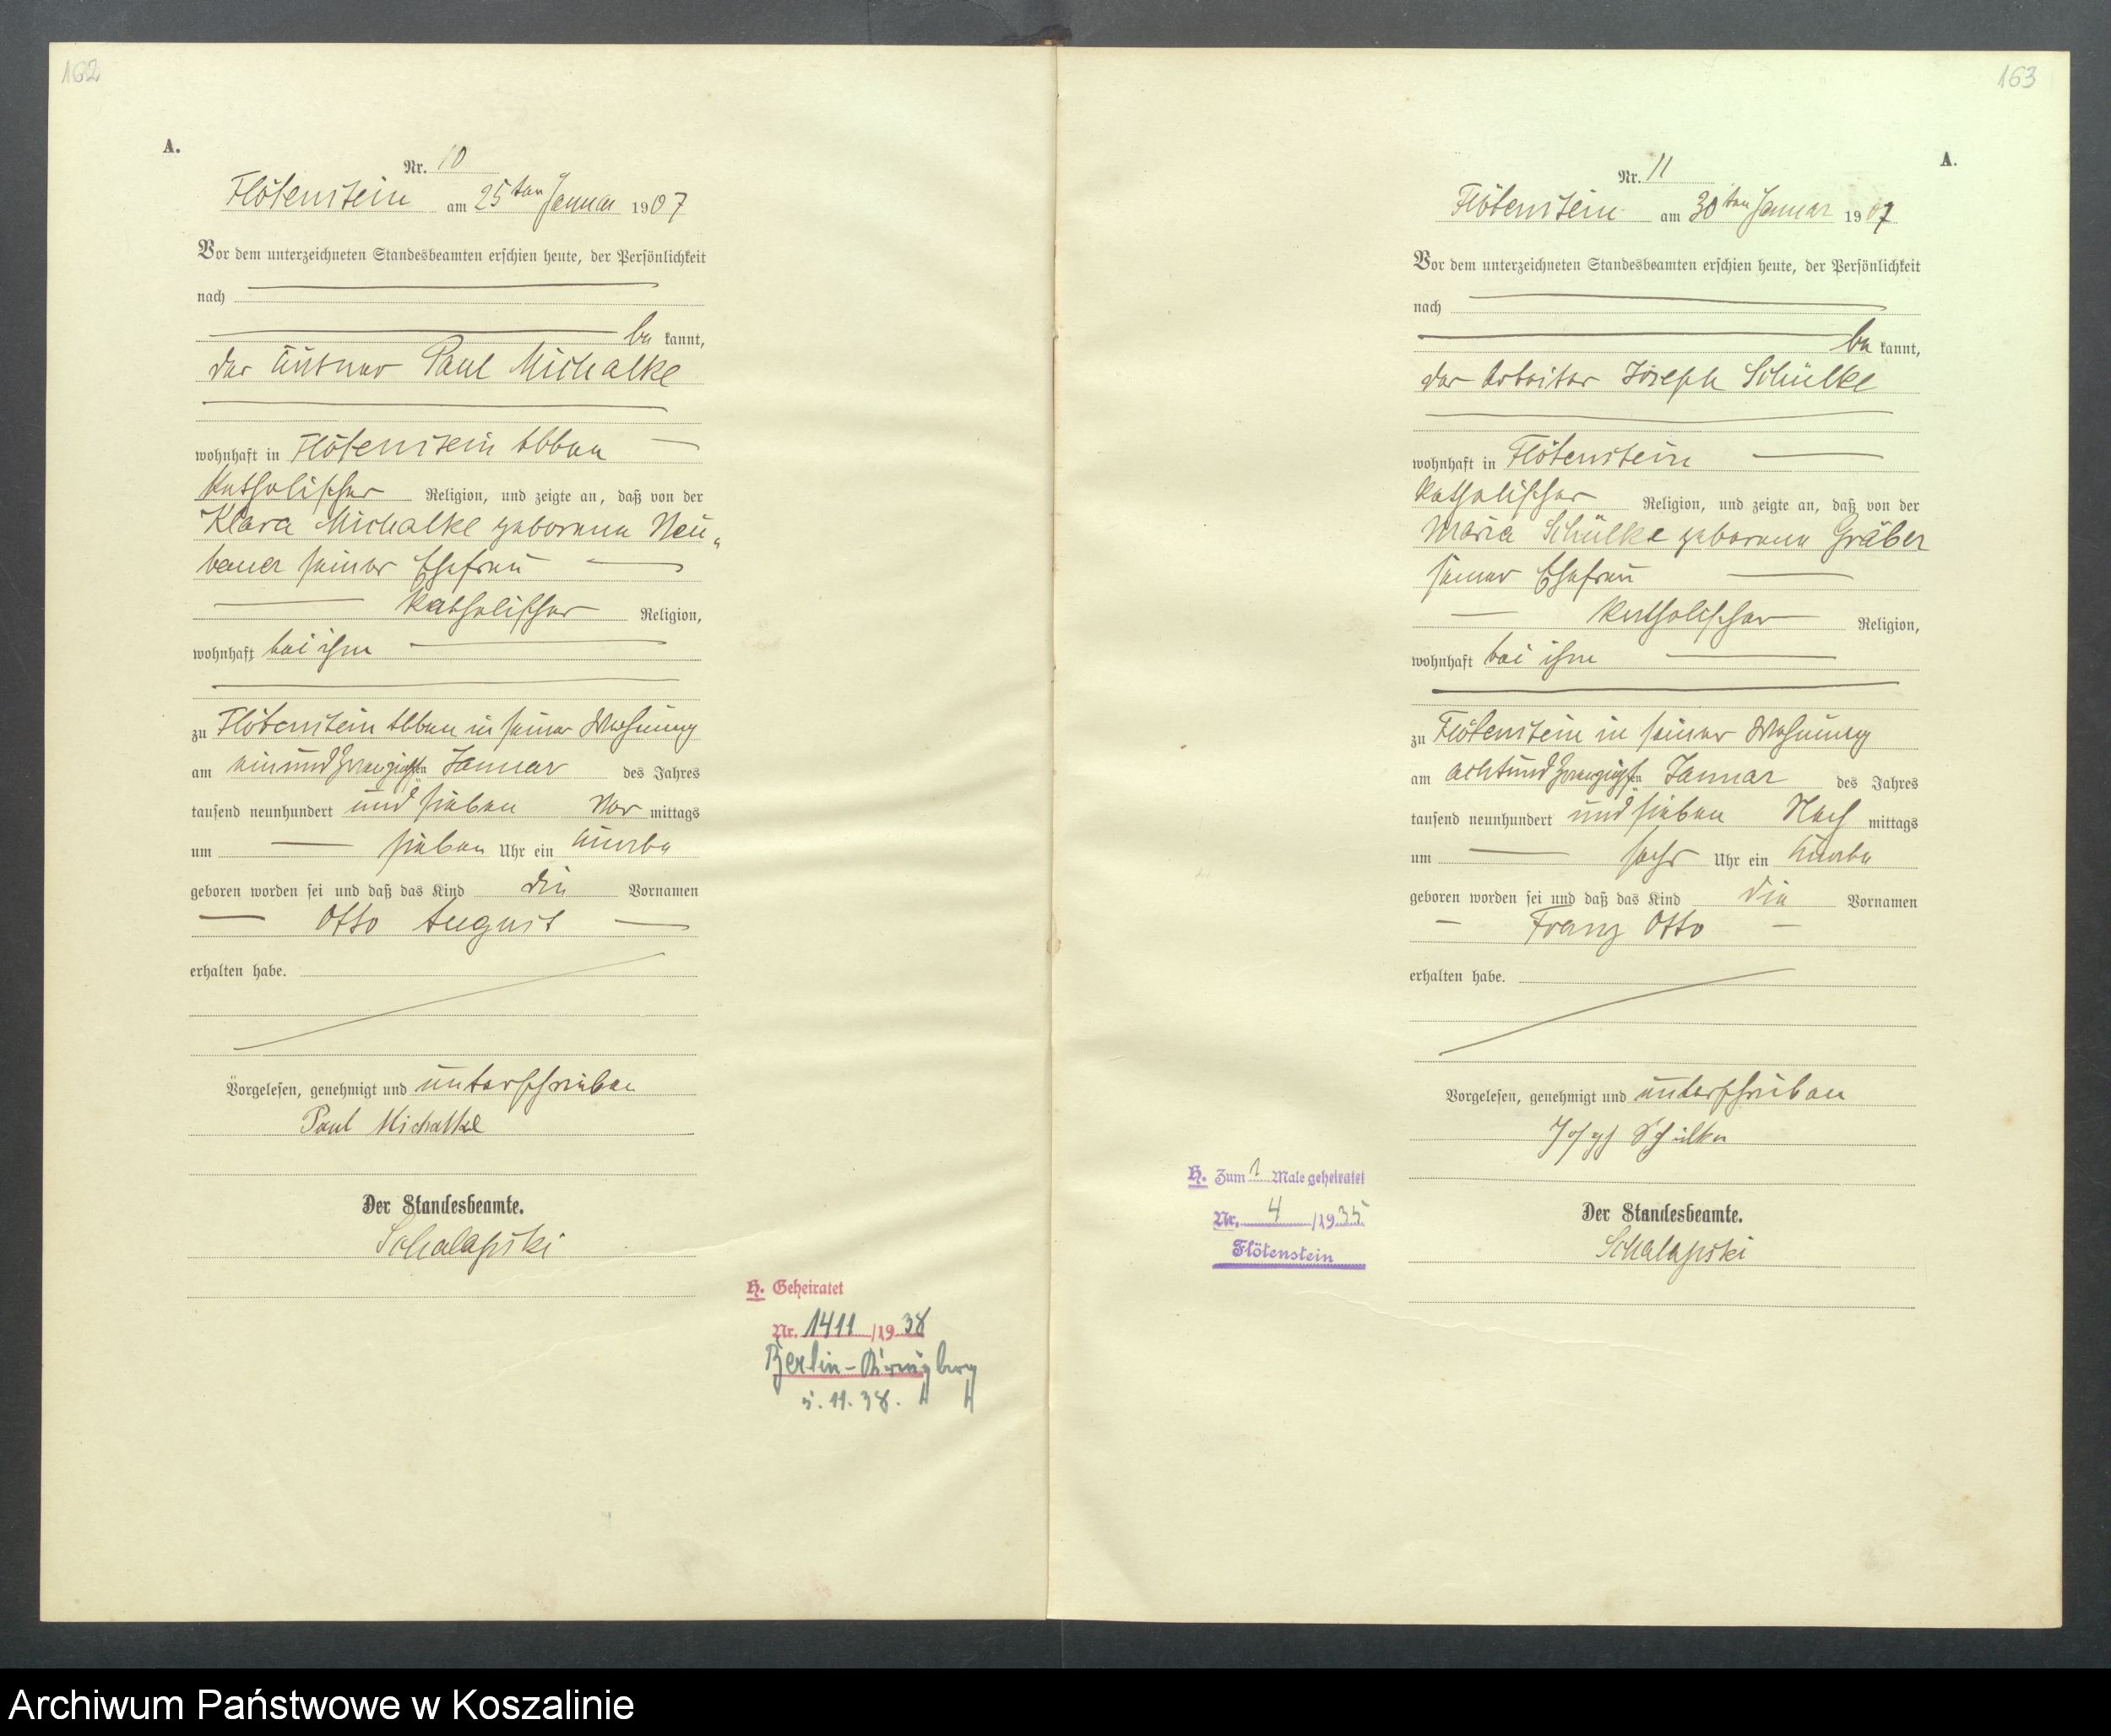 162
A.
Nr. 10
Flötenstein am 25ten Januar 1907
Vor dem unterzeichneten Standesbeamten erschien heute, der Persönlichkeit
nach
be kannt,
der Paul Michalke
wohnhaft in Flötenstein Abbau
katholischer Religion, und zeigte an, daß von der
Klara Michalke geborene Neu„
bauer seiner Ehefrau
katholischer Religion,
wohnhaft bei ihm
zu Flötenstein Abbau in seiner Wohnung
am einundzwanzigsten Januar des Jahres
tausend neunhundert und sieben Vor mittags
um sieben Uhr ein Knabe
geboren worden sei und daß das Kind die Vornamen
Otto August
erhalten habe.
Vorgelesen, genehmigt und unterschrieben
Paul Michalke
Der Standesbeamte.
Schalapski
H. Geheiratet
Nr. 1411/1938
Berlin-
5.11.38.
163
A.
Nr. 11
Flötenstein am 30ten Januar 1907
Vor dem unterzeichneten Standesbeamten erschien heute, der Persönlichkeit
nach
be kannt,
der Arbeiter Joseph Schülke
wohnhaft in Flötenstein
katholischer Religion, und zeigte an, daß von der
Maria Schülke geborene Gräber
seiner Ehefrau
katholischer Religion,
wohnhaft bei ihm
zu Flötenstein in seiner Wohnung
am achtundzwanzigsten Januar des Jahres
tausend neunhundert und sieben Nach mittags
um sechs Uhr ein Knabe
geboren worden sei und daß das Kind die Vornamen
Franz Otto
erhalten habe.
Vorgelesen, genehmigt und unterschrieben
Josef Schülke
Der Standesbeamte.
Schalapski
H. Zum 1 Male geheiratet
Nr. 4/1935
Flötenstein
Archiwum Państwowe w Koszalinie